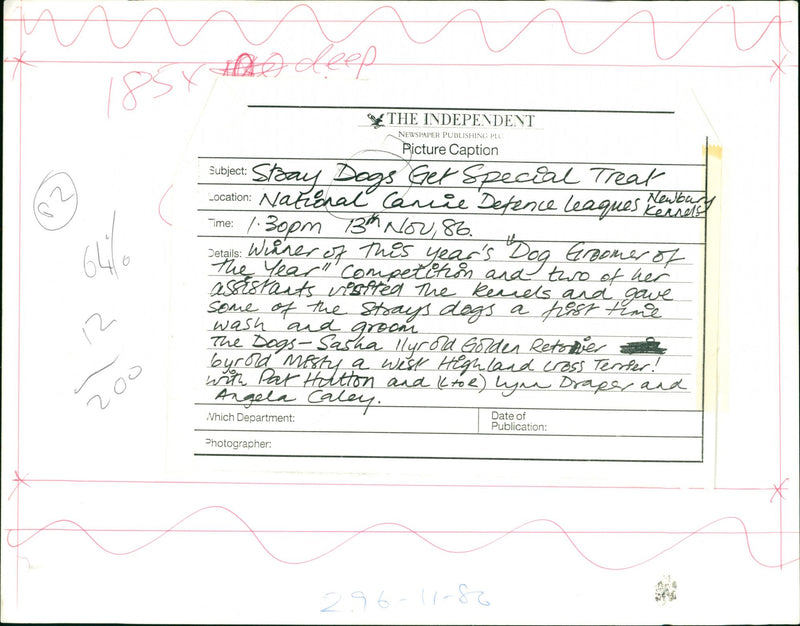 185 x deep
THE INDEPENDENT
NEWSPAPER PUBLISHING PLC
Picture Caption
Subject: Stray Dogs Get Special Treat
Location: National Canine Defence Leagues Newbury Kennels
Time: 1.30pm 13th Nov, 86.
Details: Winner of this year's "Dog Groomer of
The Year" Competition and two of her
assistants visited the kennels and gave
some of the strays dogs a first time
wash and groom
The Dogs - Sasha 11yrold Golden Retriever
6yrold Misty a West Highland cross Terrier!
with Pat Hutton and (L to R) Lynn Draper and
Angela Caley.
Which Department:
Date of
Publication:
Photographer:
64%
12
200
296-11-86